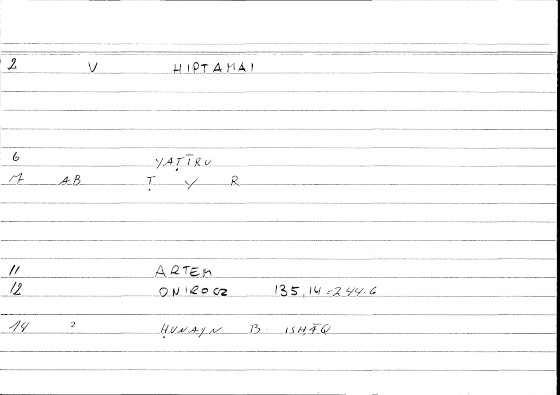 2 V HIPTAMAI
6 YAṬĪRU
M AB Ṭ Y R
11 ARTEM
12 ONIROCZ 135,14=244.6
14 ? ḤUNAYN B. ISḤĀQ